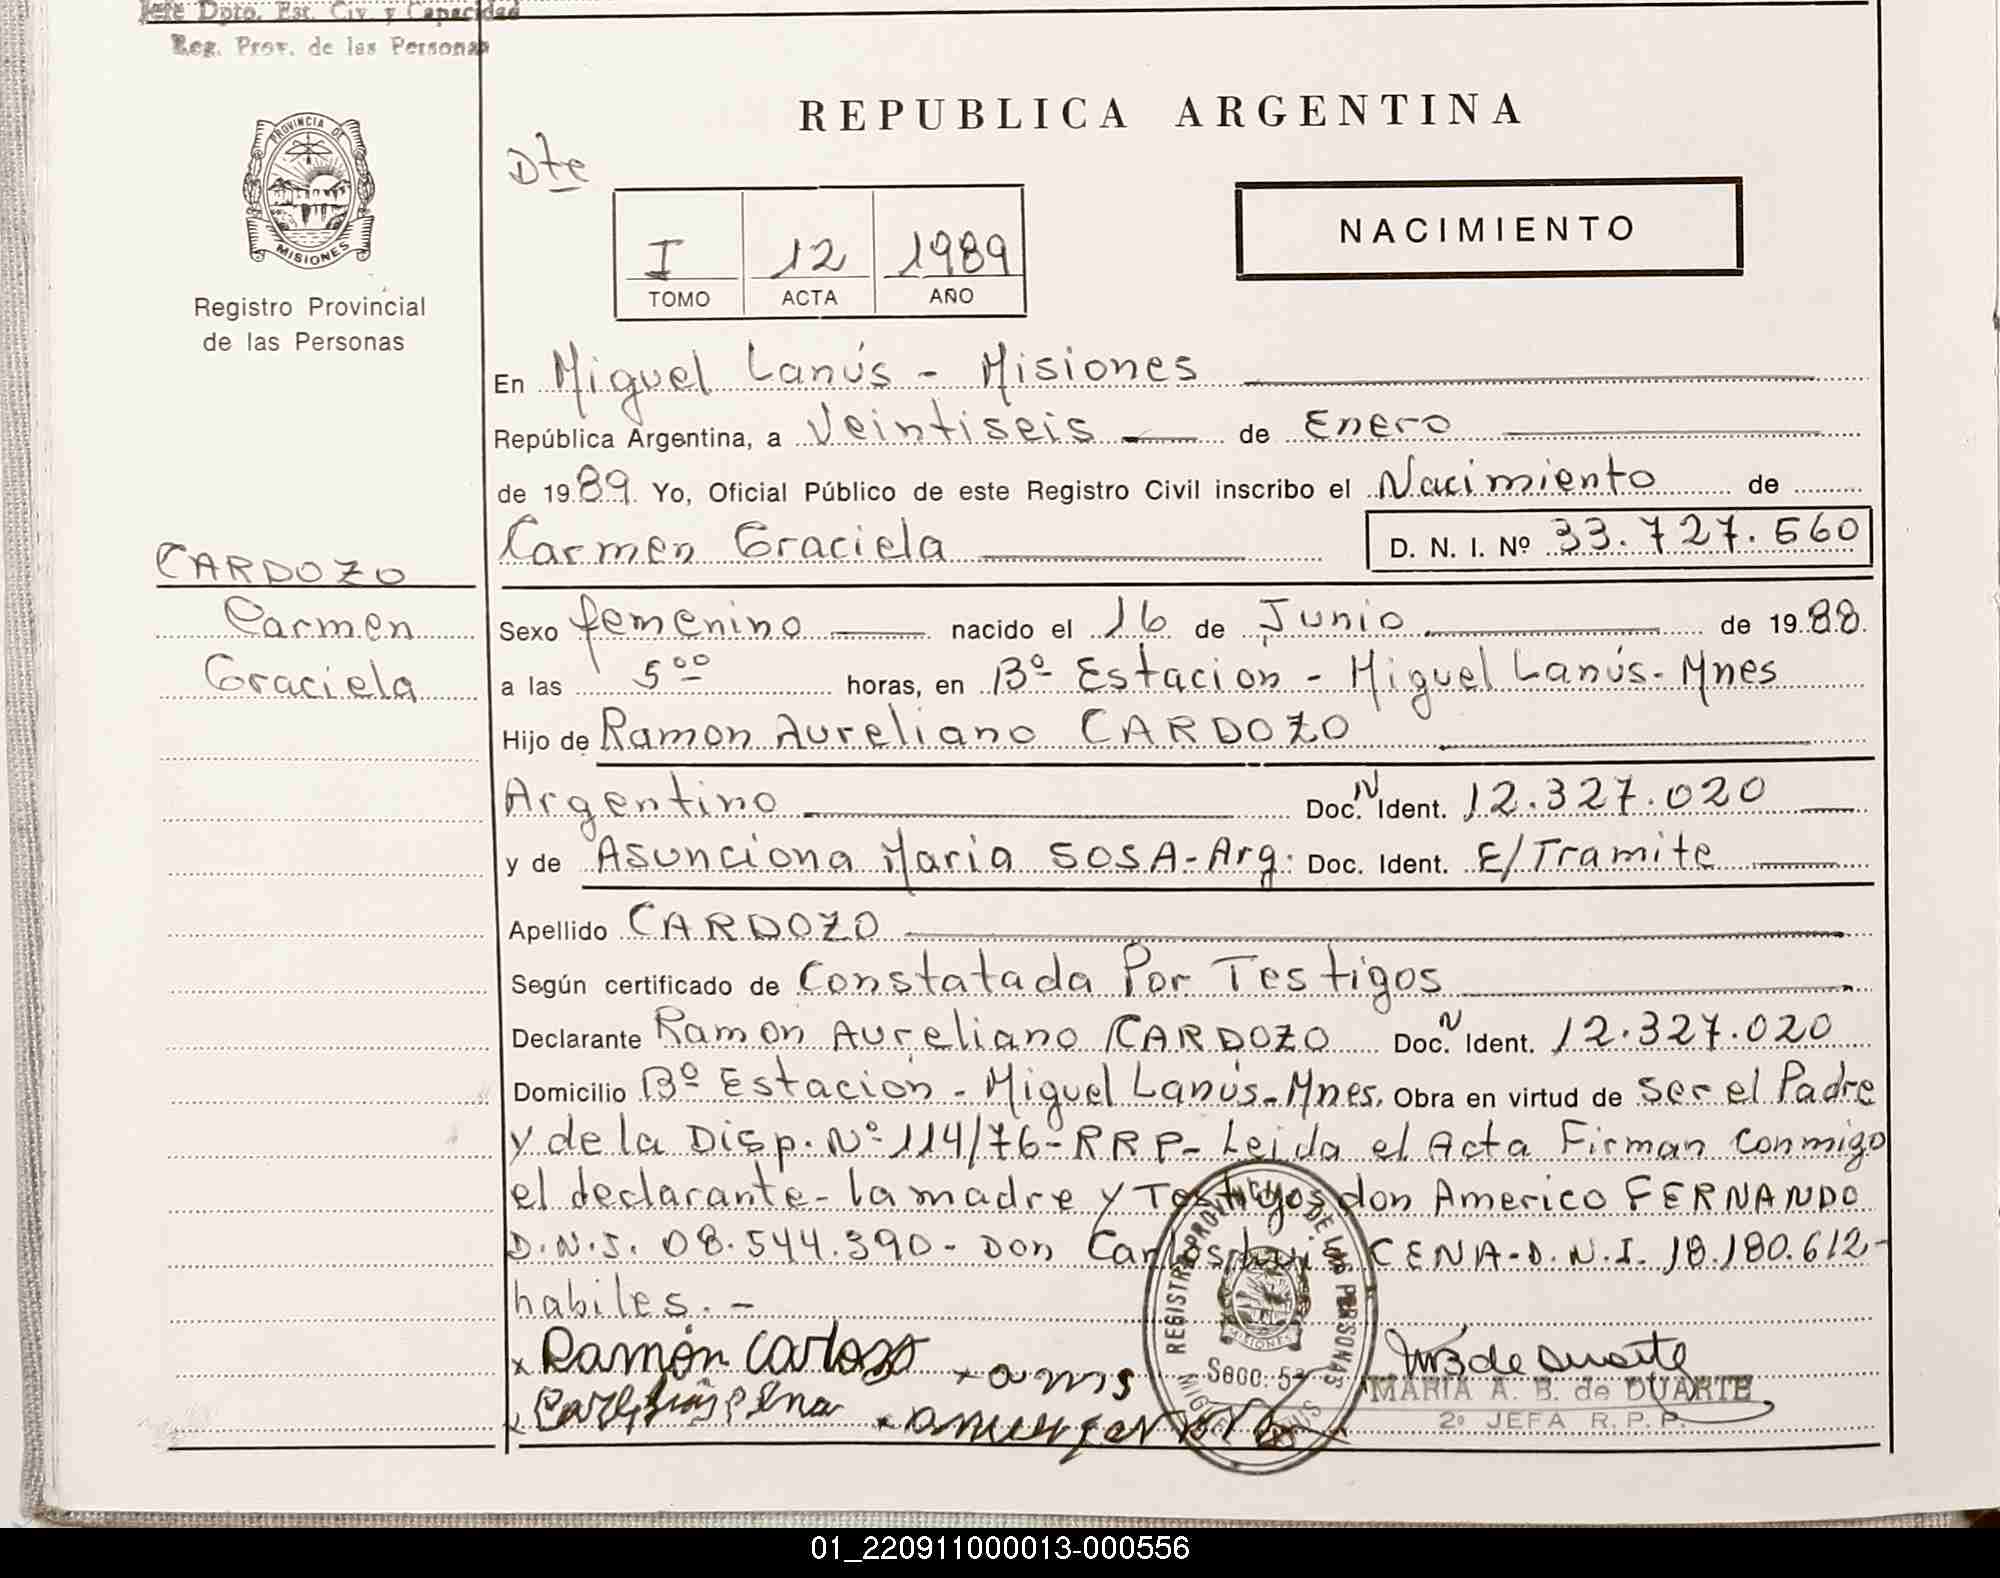 Jefe Dpto. Est. Civ. y Capacidad
Reg. Prov. de las Personas
PROVINCIA DE
MISIONES
Registro Provincial
de las Personas
CARDOZO
Carmen
Graciela
REPUBLICA ARGENTINA
Dte
I 12 1989
TOMO ACTA AÑO
NACIMIENTO
En Miguel Lanús - Misiones
República Argentina, a Veintiseis de Enero
de 1989. Yo, Oficial Público de este Registro Civil inscribo el Nacimiento de
Carmen Graciela D. N. I. Nº 33.727.560
Sexo femenino nacido el 16 de Junio de 1988.
a las 5ºº horas, en Bº Estacion - Miguel Lanús - Mnes
Hijo de Ramon Aureliano CARDOZO
Argentino Doc. N Ident. 12.327.020
y de Asunciona Maria SOSA - Arg. Doc. Ident. E/Tramite
Apellido CARDOZO
Según certificado de Constatada Por Testigos
Declarante Ramon Aureliano CARDOZO Doc. N Ident. 12.327.020
Domicilio Bº Estación - Miguel Lanús - Mnes. Obra en virtud de ser el Padre
y de la Disp. Nº 114/76 - RRP - Leida el Acta Firman conmigo
el declarante - la madre y Testigos don Americo FERNANDO
D.N.I. 08.544.390 - Don Carlos CENA - D.N.I. 18.180.612 -
habiles. -
x Ramón Cardozo x a ms
REGISTRO PROVINCIAL DE LAS PERSONAS
MISIONES
Secc. 52
MARIA A. B. de DUARTE
2º JEFA R. P. P.
01_220911000013-000556